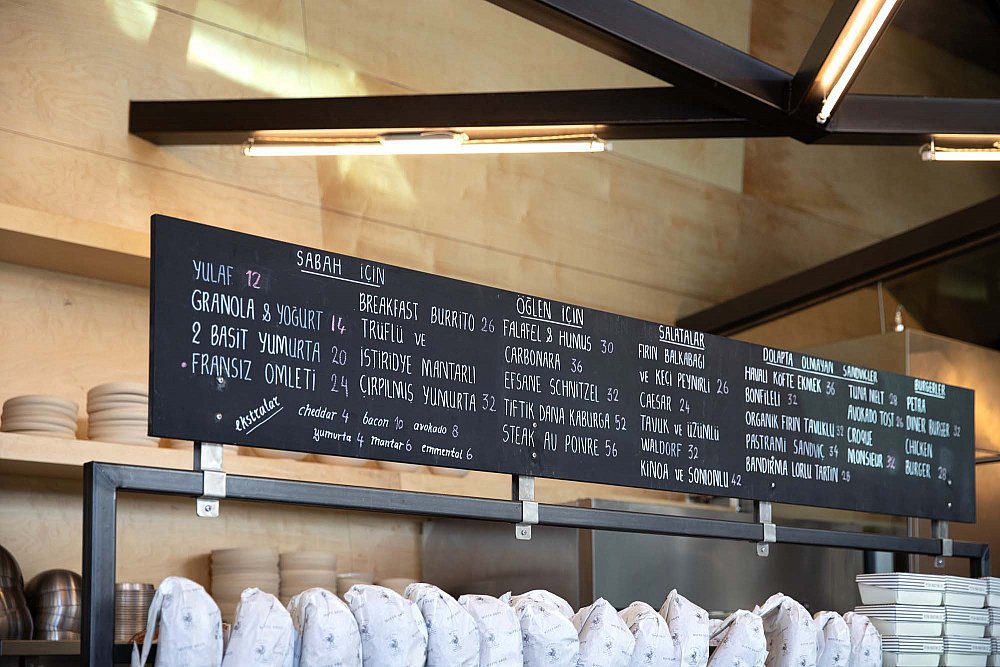 SABAH İÇİN
YULAF 12
GRANOLA & YOĞURT 14
2 BASİT YUMURTA 20
FRANSIZ OMLETİ 24
BREAKFAST BURRITO 26
TRÜFLÜ VE
İSTİRİDYE MANTARLI
ÇIRPILMIŞ YUMURTA 32
ekstralar
cheddar 4 bacon 10 avokado 8
yumurta 4 mantar 6 emmental 6
ÖĞLEN İÇİN
FALAFEL & HUMUS 30
CARBONARA 36
EFSANE SCHNITZEL 32
TİFTİK DANA KABURGA 52
STEAK AU POIVRE 56
SALATALAR
FIRIN BALKABAĞI
VE KEÇİ PEYNİRLİ 26
CAESAR 24
TAVUK VE ÜZÜMLÜ
WALDORF 32
KİNOA VE SOMONLU 42
DOLAPTA OLMAYAN SANDVİÇLER
HAVALI KÖFTE EKMEK 36
BONFİLELİ 32
ORGANİK FIRIN TAVUKLU 32
PASTRAMİ SANDVİÇ 34
BANDIRMA LORLU TARTIN 28
TUNA MELT 28
AVOKADO TOST 26
CROQUE
MONSIEUR 32
BURGERLER
PETRA
DINER BURGER 32
CHICKEN
BURGER 28